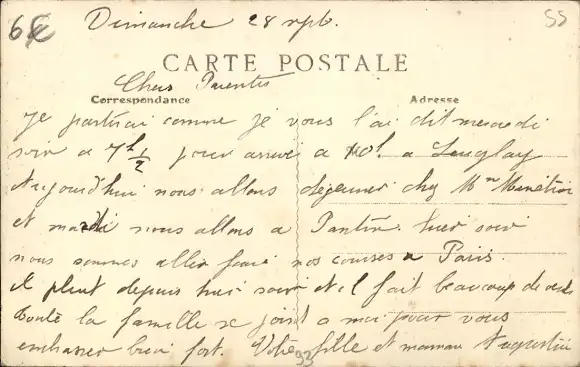 Dimanche 28 spb.
55
CARTE POSTALE
Chers Parents
Correspondance
Adresse
Je partirai comme je vous l'ai dit mercredi
soir a 7h 1/2 pour arriver a 10h. a Leuglay
Aujourd'hui nous allons dejeuner chez Mr
et mardi nous allons a Pantin. hier soir
nous sommes aller faire nos courses a Paris.
il pleut depuis hier soir et il fait beaucoup de vent
toute la famille se joint a moi pour vous
embrasser bien fort. Votre fille et maman Augustine
93